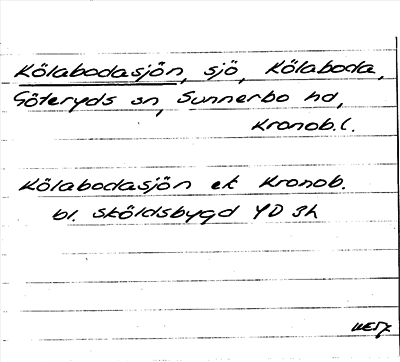 Kölabodasjön, sjö, Kölaboda,
Göteryds sn, Sunnerbo hd,
Kronob.l.
Kölabodasjön ek Kronob.
bl. Sköldsbygd YD 3h